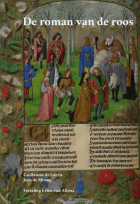 De roman van de roos
Guillaume de Lorris
Jean de Meung
Vertaling Ernst van Altena